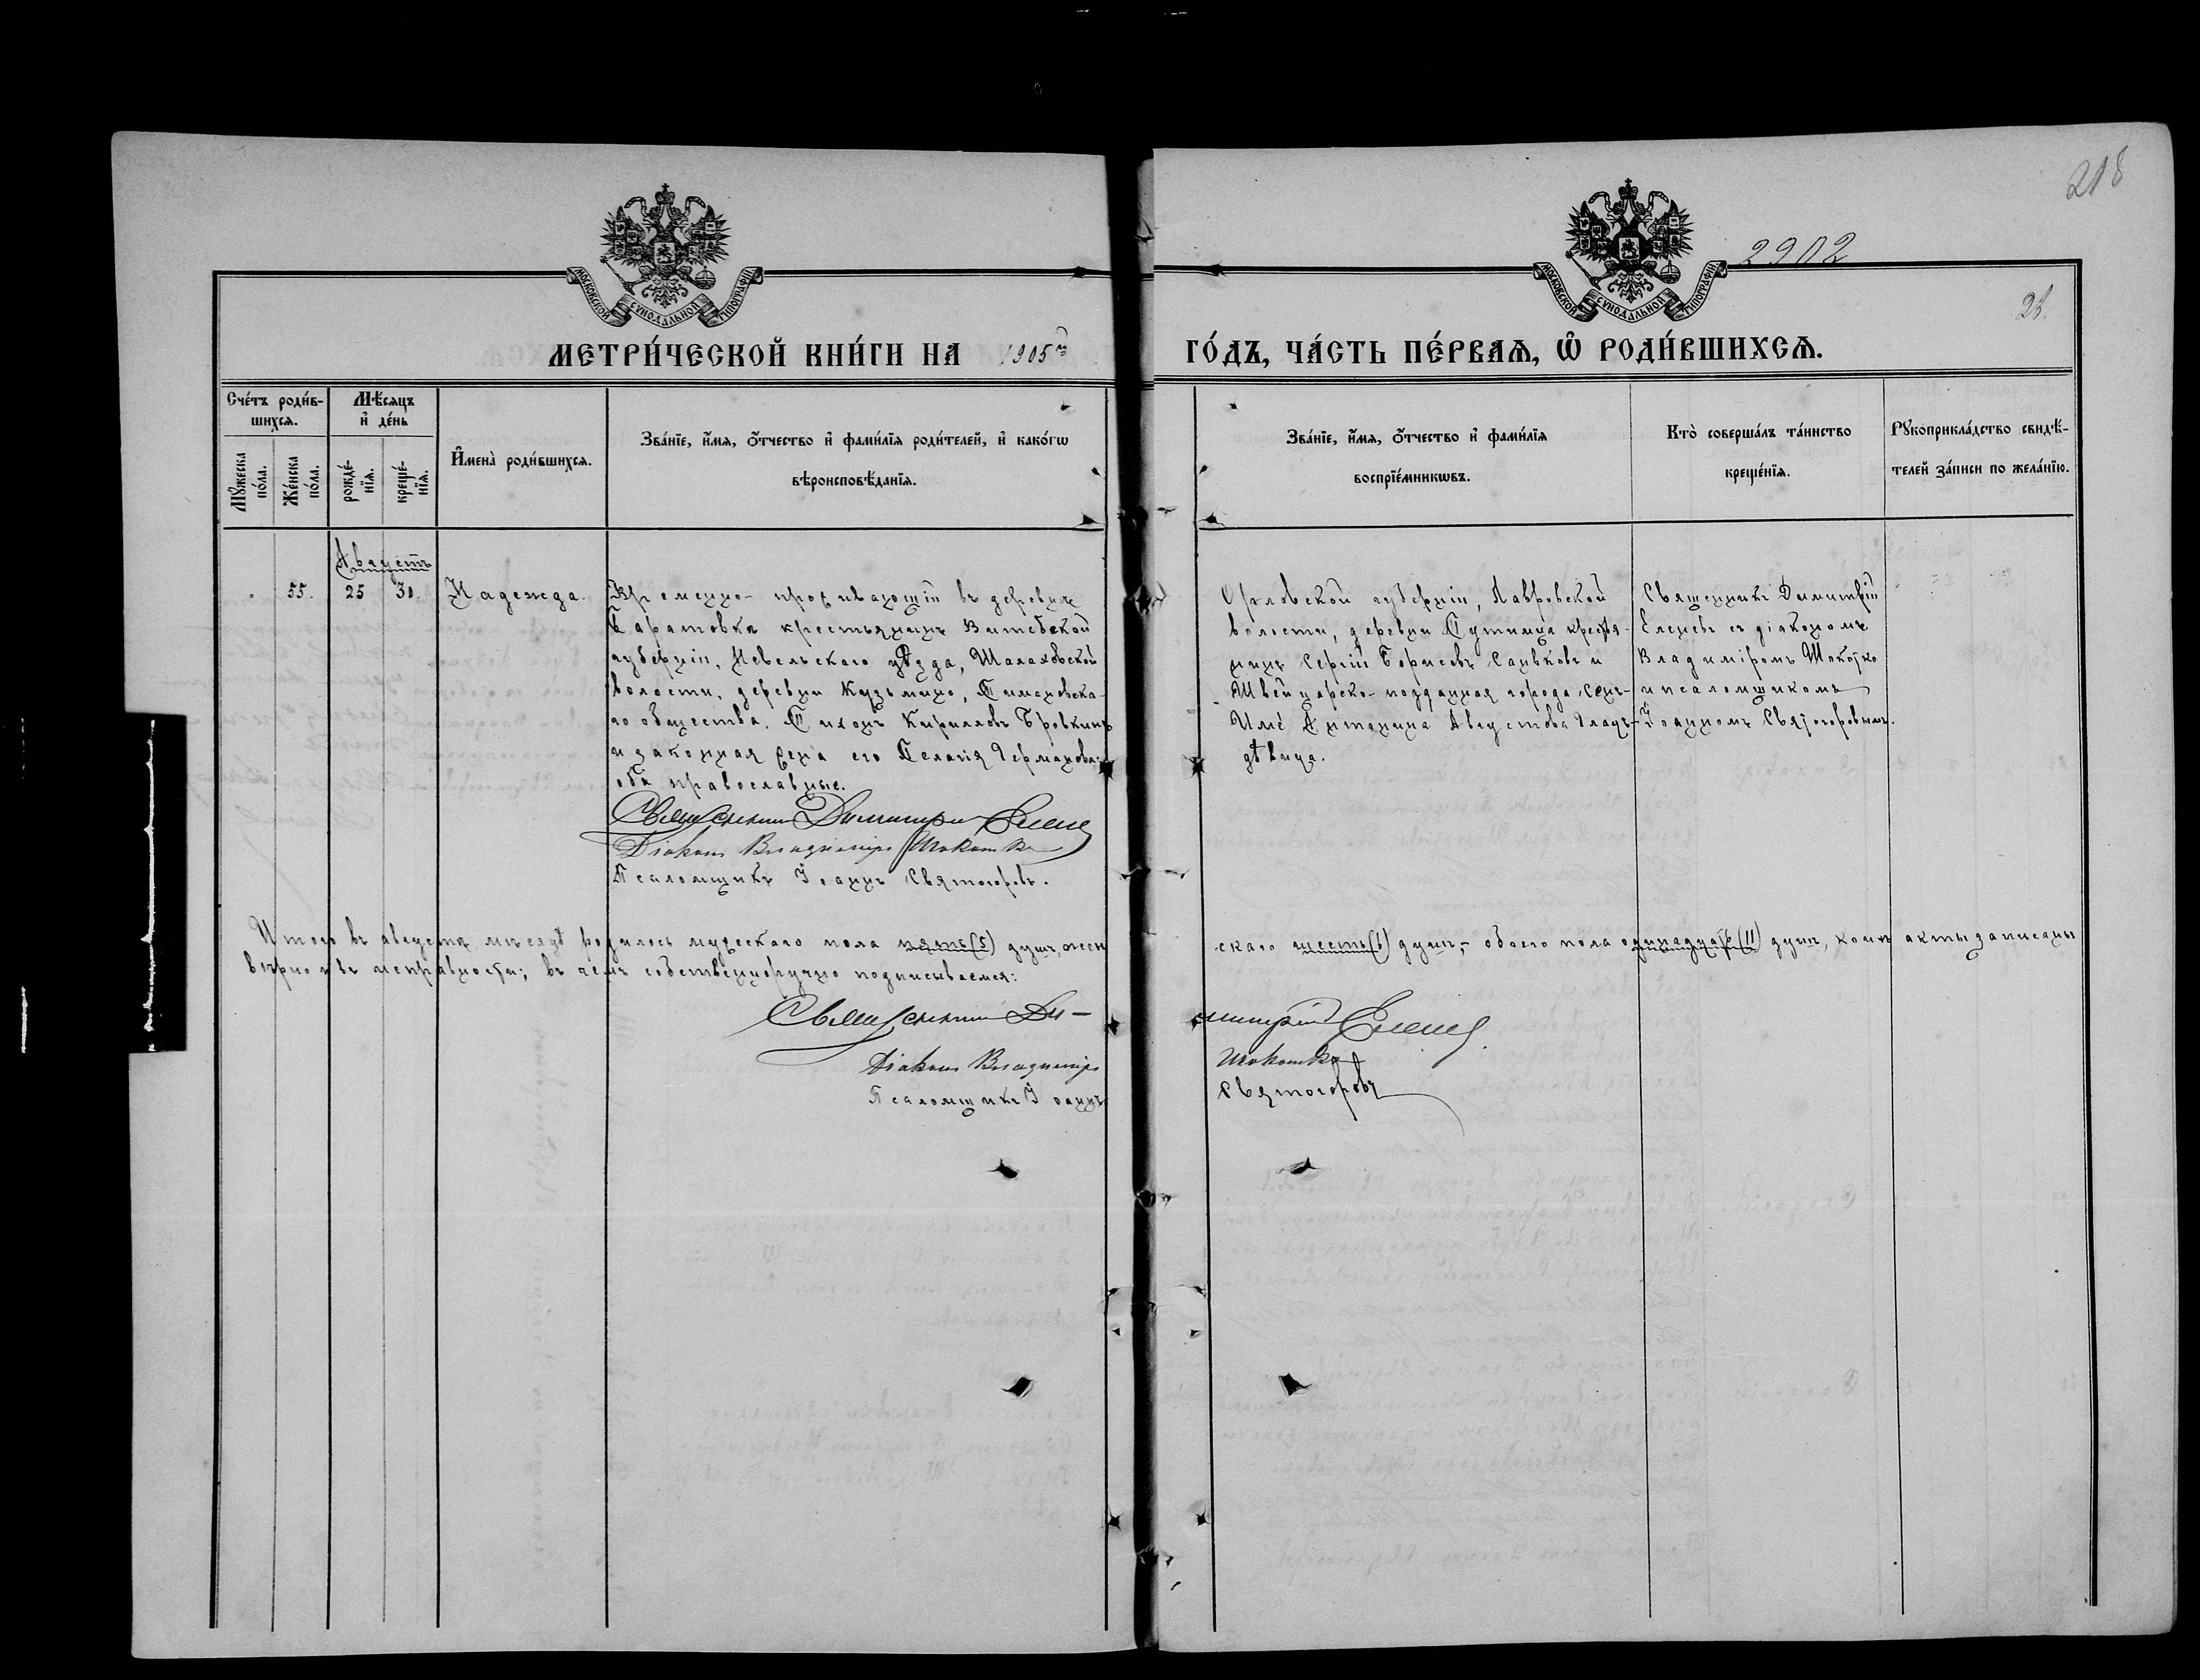 218
2902
26.
МОСКОВСКОЙ СѴНОДАЛЬНОЙ ТИПОГРАФІИ
МОСКОВСКОЙ СѴНОДАЛЬНОЙ ТИПОГРАФІИ
МЕТРИ́ЧЕСКОЙ КНИ́ГИ НА 1905й ГО́ДЪ, ЧА́СТЬ ПЕ́РВАѦ, Ѡ҆ РОДИ́ВШИХСѦ.
Сче́тъ роди́в-
шихсѧ.
Мꙋ́жеска по́ла.
Же́нска по́ла.
Мѣ́сѧцъ
и҆ де́нь
рожде́-
нїѧ.
креще́-
нїѧ.
И҆мена̀ роди́вшихсѧ.
Зва́нїе, и҆́мѧ, ѻ҆́тчество и҆ фами́лїѧ роди́телей, и҆ како́гѡ
вѣроисповѣ́данїѧ.
Зва́нїе, и҆́мѧ, ѻ҆́тчество и҆ фами́лїѧ
воспрїе́мникѡвъ.
Кто̀ соверша́лъ та́инство
креще́нїѧ.
Рꙋкоприкла́дство свидѣ́-
телей за́писи по жела́нїю.
Августъ
55. 25 30. Надежда.
Временно-проживающій въ деревнѣ
Саратовкѣ крестьянинъ Витебской
губерніи, Невельскаго уѣзда, Шалаховской
волости, деревни Кузьмино, Симановска-
го общества, Тихонъ Кирилловъ Бровкинъ
и законная жена его Пелагія Германова;
оба православные.
Священникъ Димитрій Еленевъ
Діаконъ Владиміръ Шокотко
Псаломщикъ Іоаннъ Святогоровъ.
Орловской губерніи, Лавровской
волости, деревни крестья-
нинъ Сергій Борисовъ Саньковъ и
Швейцарско-подданная города Сент-
Имé Антонина Августова
дѣвица.
Священникъ Димитрій
Еленевъ съ діакономъ
Владиміромъ Шокотко
и псаломщикомъ
Іоанномъ Святогоровымъ.
Итого въ августѣ мѣсяцѣ родилось мужескаго пола пять (5) душъ, жен скаго шесть (6) душъ, - обоего пола одинадцать (11) душъ, коихъ акты записаны
вѣрно и въ исправности; въ чемъ собственноручно подписываемся:
Священникъ Ди- митрій Еленевъ
Діаконъ Владиміръ Шокотко
Псаломщикъ Іоаннъ Святогоровъ